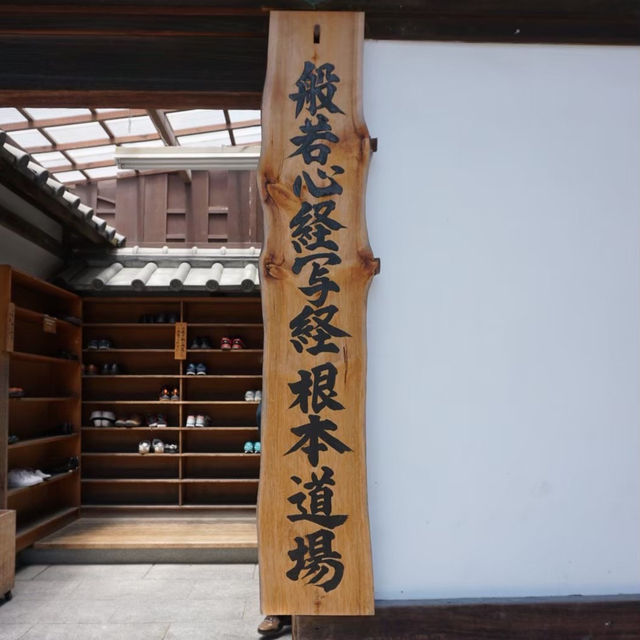 般若心経写経根本道場